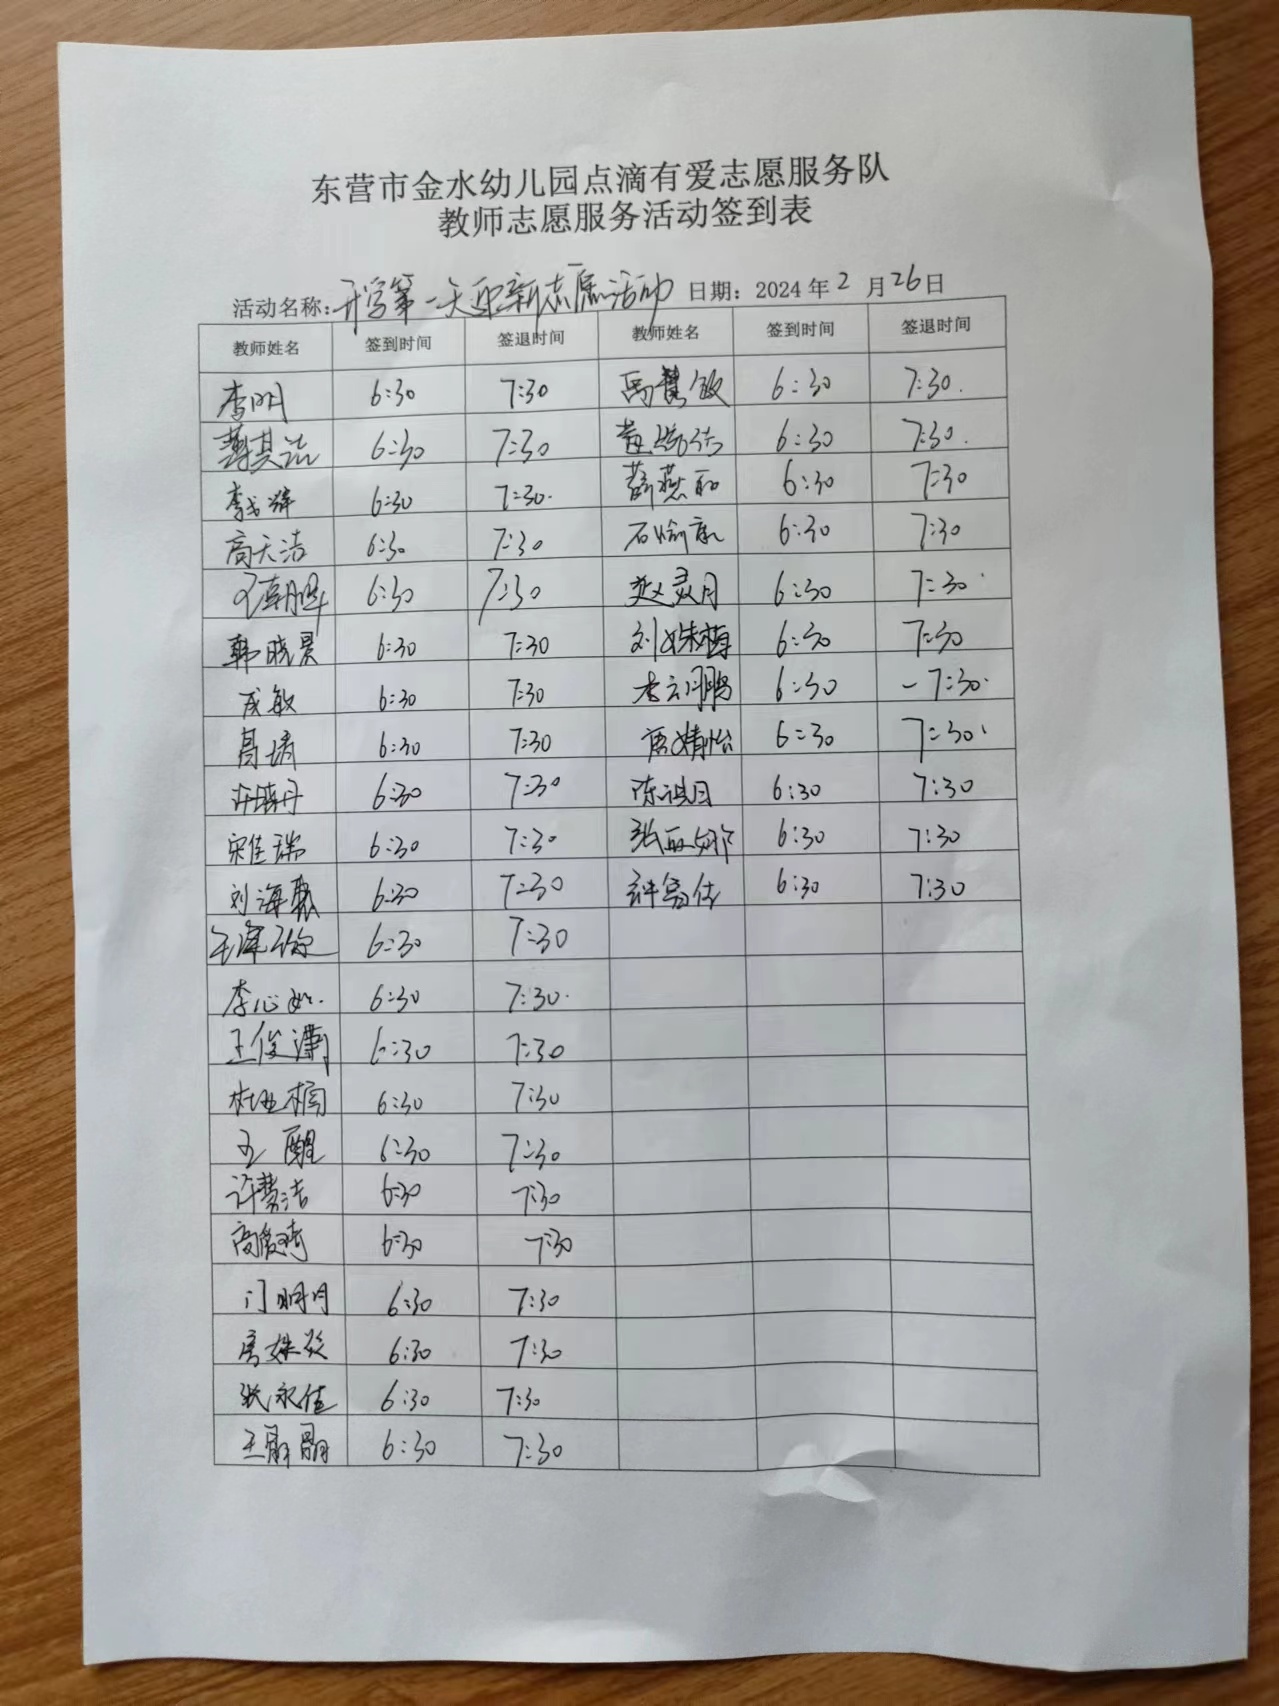 东营市金水幼儿园点滴有爱志愿服务队
教师志愿服务活动签到表
活动名称：开学第一天迎新志愿活动 日期：2024年2月26日
教师姓名 签到时间 签退时间 教师姓名 签到时间 签退时间
李明 6:30 7:30 6:30 7:30.
薄其洁 6:30 7:30 6:30 7:30.
6:30 7:30. 薛燕和 6:30 7:30
高天洁 6:30 7:30 6:30 7:30
6:30 7:30 赵灵月 6:30 7:30
韩晓昊 6:30 7:30 刘姝梅 6:30 7:30
成敏 6:30 7:30 6:30 7:30
高靖 6:30 7:30 唐婧怡 6:30 7:30
6:30 7:30 陈祺月 6:30 7:30
宋佳瑞 6:30 7:30 张丽娜 6:30 7:30
刘海霞 6:30 7:30 6:30 7:30
6:30 7:30
李心如 6:30 7:30
王俊潇 6:30 7:30
杜亚楠 6:30 7:30
王醒 6:30 7:30
许梦洁 6:30 7:30
高爱琦 6:30 7:30
门明月 6:30 7:30
6:30 7:30
张永佳 6:30 7:30
王朋朋 6:30 7:30